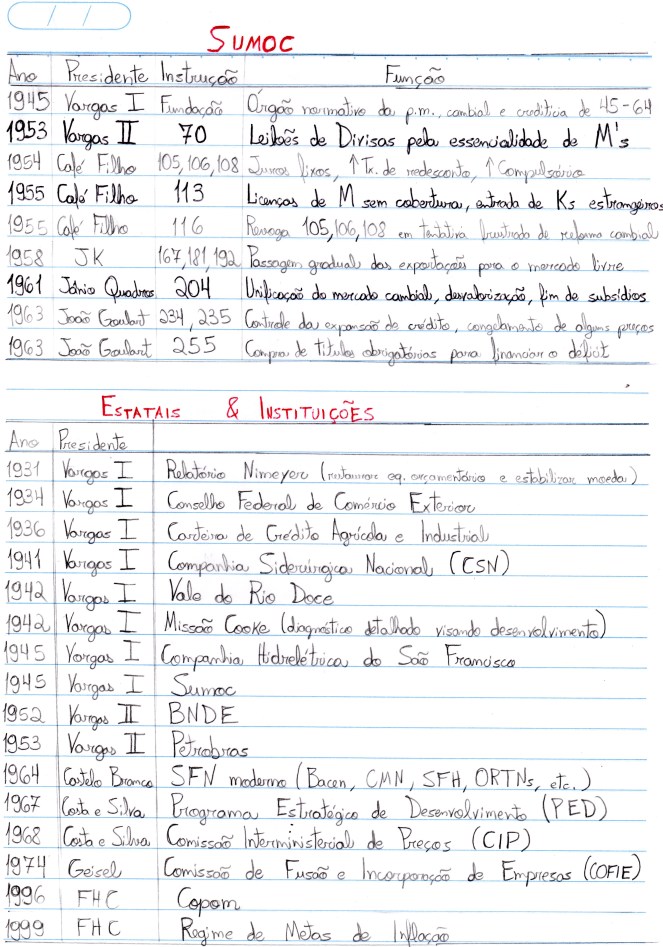 SUMOC
Ano Presidente Instrução Função
1945 Vargas I Fundação Órgão normativo da p.m., cambial e creditícia de 45-64
1953 Vargas II 70 Leilões de Divisas pela essencialidade de M's
1954 Café Filho 105,106,108 Juros fixos, ↑Tx. de redesconto, ↑Compulsório
1955 Café Filho 113 Licenças de M sem cobertura, entrada de Ks estrangeiros
1955 Café Filho 116 Revoga 105,106,108 em tentativa frustrada de reforma cambial
1958 JK 167,181,192 Passagem gradual das exportações para o mercado livre
1961 Jânio Quadros 204 Unificação do mercado cambial, desvalorização, fim de subsídios
1963 João Goulart 234, 235 Controle da expansão do crédito, congelamento de alguns preços
1963 João Goulart 255 Compra de títulos obrigatórias para financiar o déficit
ESTATAIS & INSTITUIÇÕES
Ano Presidente
1931 Vargas I Relatório Nimeyer (restaurar eq. orçamentário e estabilizar moeda)
1934 Vargas I Conselho Federal de Comércio Exterior
1936 Vargas I Carteira de Crédito Agrícola e Industrial
1941 Vargas I Companhia Siderúrgica Nacional (CSN)
1942 Vargas I Vale do Rio Doce
1942 Vargas I Missão Cooke (diagnóstico detalhado visando desenvolvimento)
1945 Vargas I Companhia Hidrelétrica do São Francisco
1945 Vargas I Sumoc
1952 Vargas II BNDE
1953 Vargas II Petrobras
1964 Castelo Branco SFN moderno (Bacen, CMN, SFH, ORTNs, etc.)
1967 Costa e Silva Programa Estratégico de Desenvolvimento (PED)
1968 Costa e Silva Comissão Interministerial de Preços (CIP)
1974 Geisel Comissão de Fusão e Incorporação de Empresas (COFIE)
1996 FHC Copom
1999 FHC Regime de Metas de Inflação